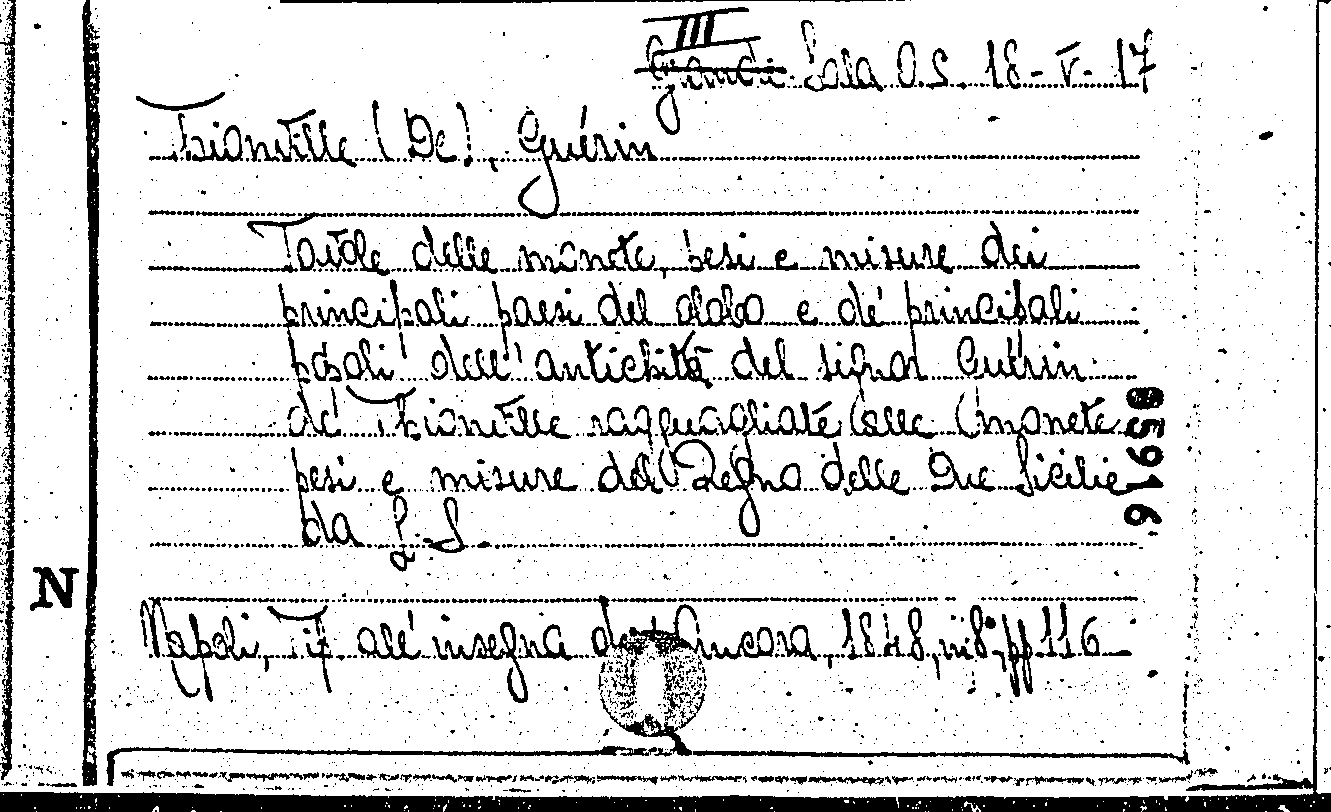 III
Grande Sala O.S. 18-V-17
Thionville (De), Guérin
Tavole delle monete, pesi e misure dei
principali paesi del globo e de' principali
popoli dell' antichità del signor Guérin
de' Thionville ragguagliate colle monete
pesi e misure del Regno delle Due Sicilie
da L. S.
Napoli, Tip. all' insegna dell' Ancora, 1848, in 8°, pp 116
N